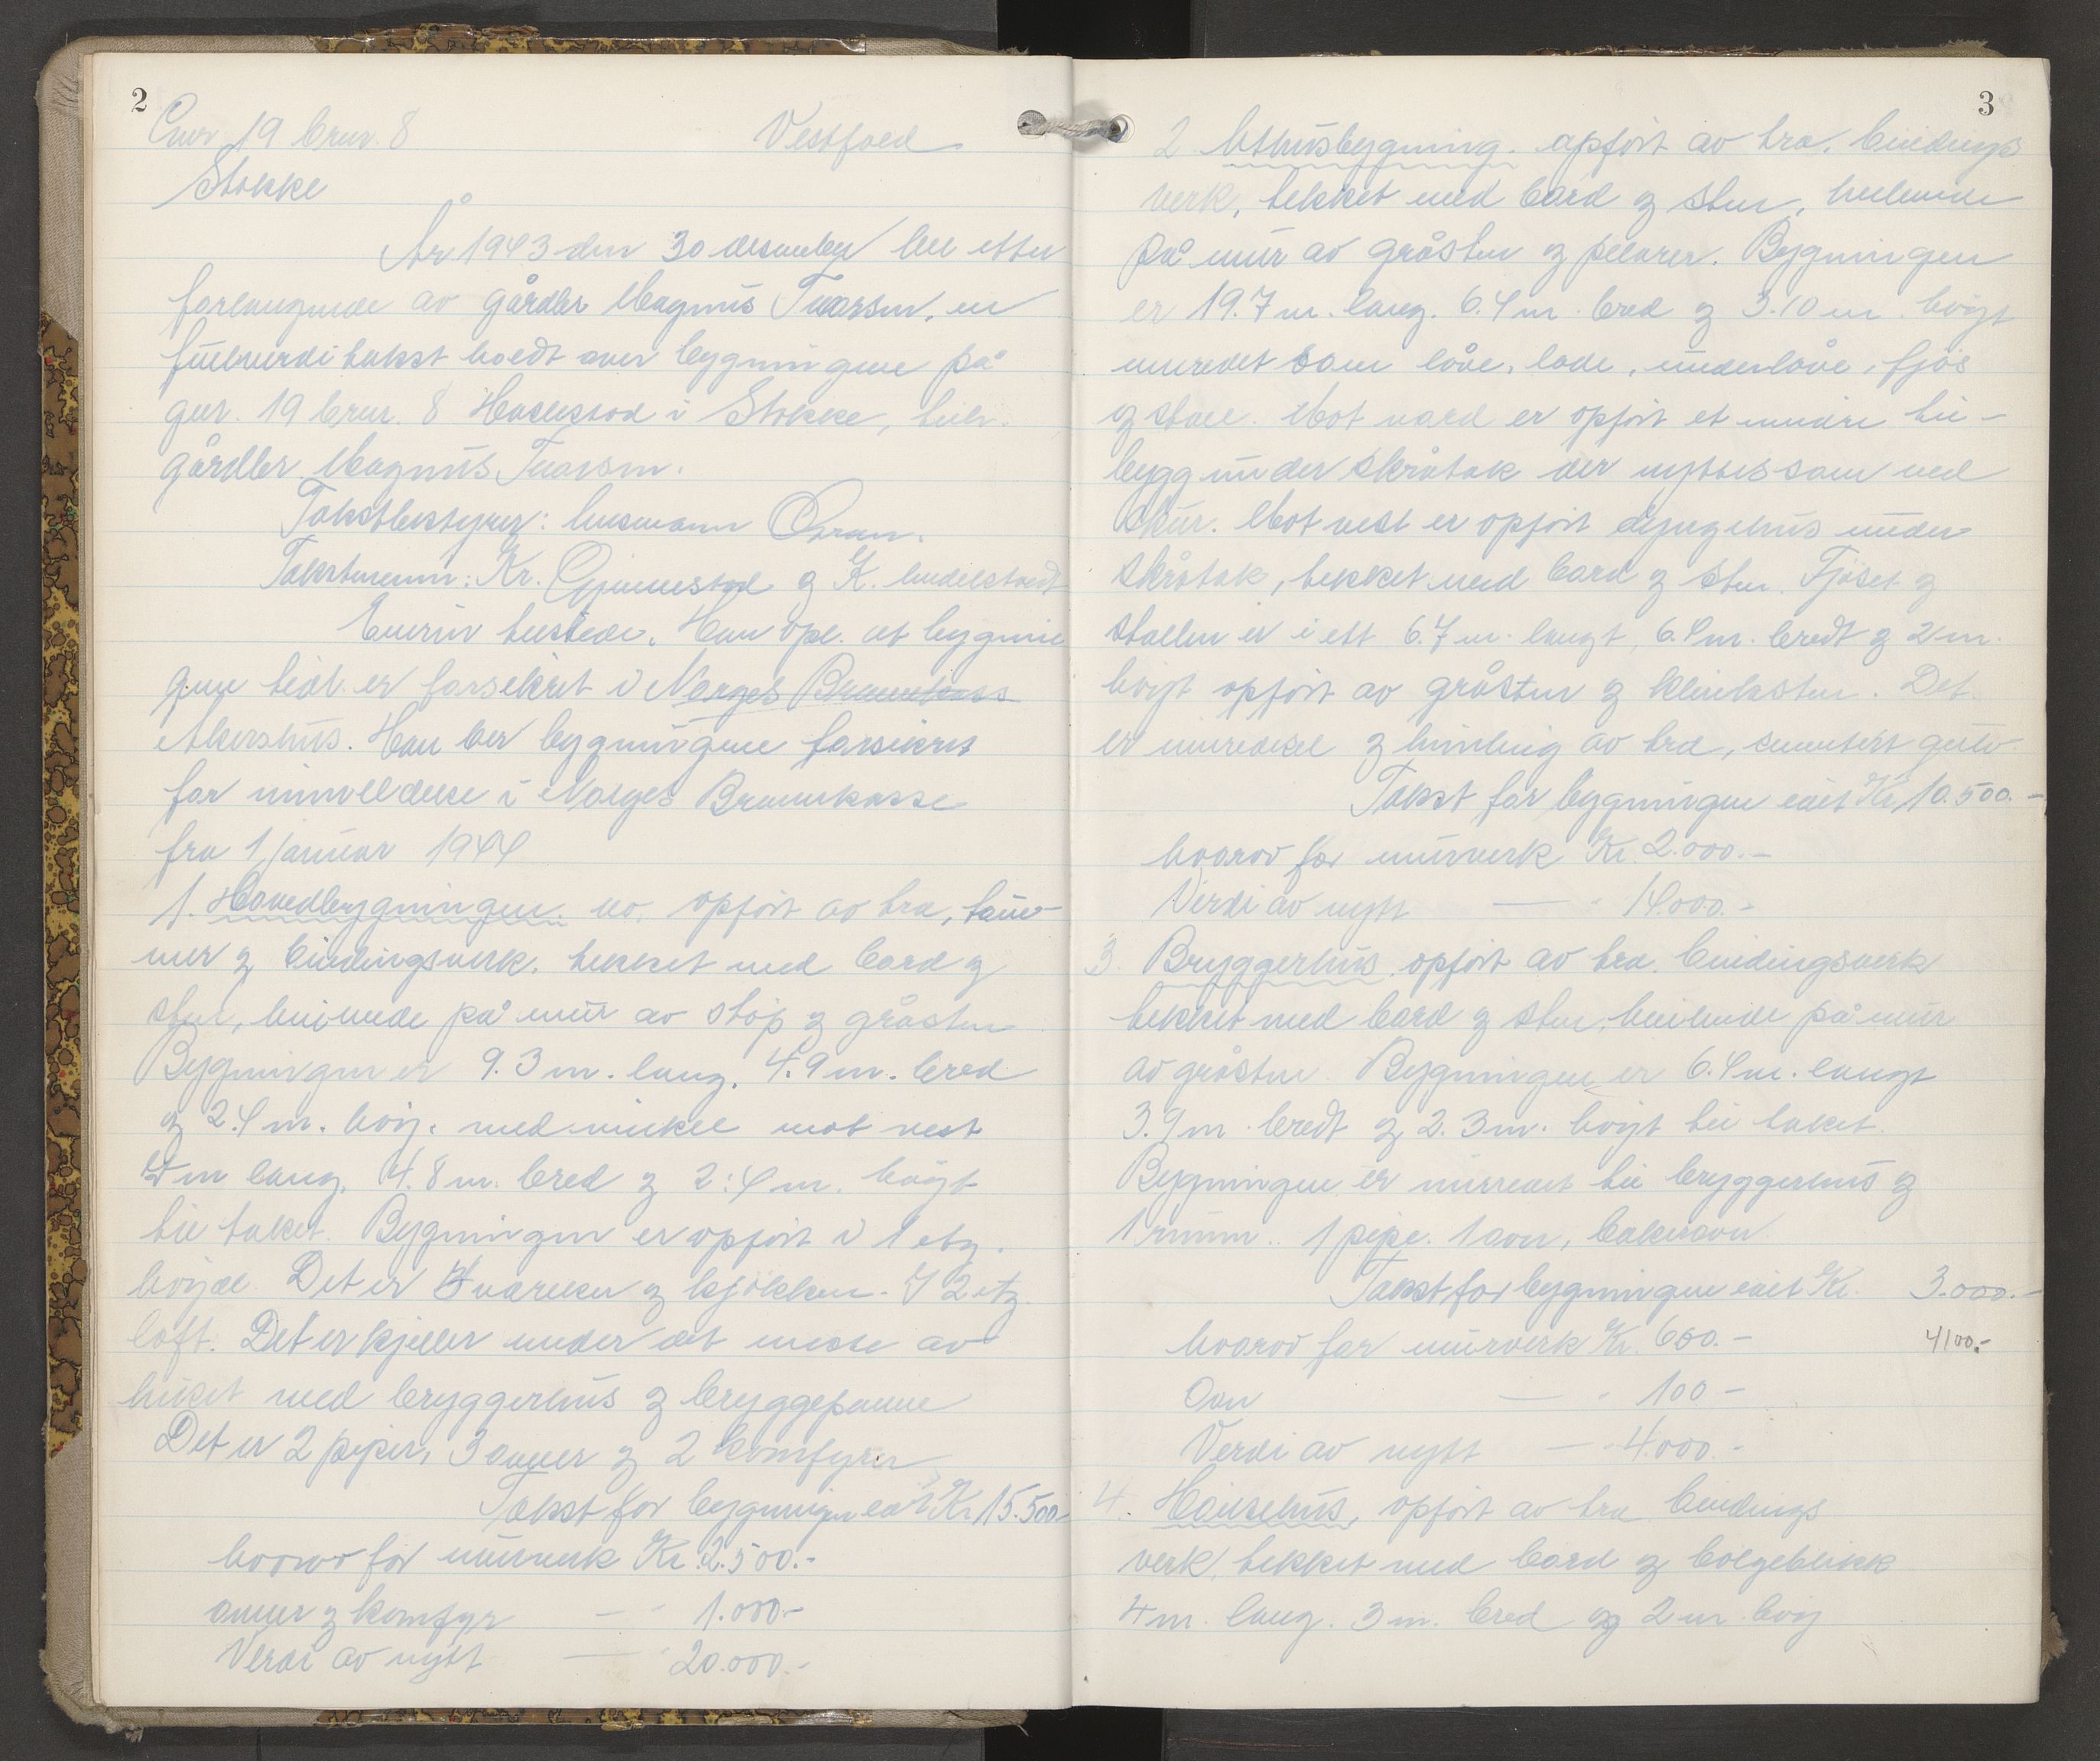 2
Gnr 19 bnr. 8 Vestfold
Stokke
År 1943 den 30 desember ble etter
forlangende av gårdbr Magnus Ivarsen, en
fullverdi takst holdt over bygningene på
gnr. 19 bnr. 8 i Stokke, tilh.
gårdbr. Magnus Ivarsen.
Takstbestyrer: lensmann
Takstmenn: Kr. Gjennestad og K.
Eieren tilstede. Han opl. at bygnin
gene tidl. er forsikret i Norges Brannkass
Akershus. Han ber bygningene forsikret
for innmeldelse i Norges Brannkasse
fra 1 januar 1944
1. Hovedbygningen. opført av tre, tøm-
mer og bindingsverk. tekket med bord og
sten, hvilende på mur av støp og gråsten
Bygningen er 9.3 m. lang. 4.9 m. bred
og 2.4 m. høi. med vinkel mot vest
4 m lang. 4.8 m. bred og 2.4 m. høigt
til taket. Bygningen er opført i 1 etg.
høide. Det er 4 værelser og kjøkken. I 2 etg.
loft. Det er kjeller under det meste av
huset med bryggerhus og bryggepanne
Det er 2 piper, 3 ovner og 2 komfyrer
Takst for bygningen ialt Kr 15.500-
hvorav for murverk Kr. 2.500.-
ovner og komfyr — - 1.000-
Verdi av nytt — - 20.000.-
3
2 Uthusbygning. opført av tre, bindings
verk, tekket med bord og sten, hvilende
på mur av gråsten og pelarer. Bygningen
er 19.7 m. lang. 6.4 m. bred og 3.10 m. høigt
innredet som låve, lade, underlåve, fjøs
og stall. Mot nord er opført et mindre til-
bygg under skråtak der nyttes som ved
skur. Mot vest er opført dyngehus under
skråtak, tekket med bord og sten. Fjøset og
stallen er i ett 6.7 m. langt, 6.4 m. bredt og 2 m.
høigt opført av gråsten og klinksten. Det
er innredsel og himling av tre, sementert gulv.
Takst for bygningen ialt Kr 10.500.-
hvorav for murverk Kr. 2.000.-
Verdi av nytt — - 14.000.-
3. Bryggerhus, opført av tre, bindingsverk
tekket med bord og sten, hvilende på mur
av gråsten. Bygningen er 6.4 m. langt
3.9 m. bredt og 2.3 m. høigt til taket.
Bygningen er innredet til bryggerhus og
1 rum. 1 pipe. 1 ovn, bakerovn
Takst for bygningen ialt Kr. 3.000.-
hvorav for murverk Kr. 600.- 4100.-
Ovn — - 100 -
Verdi av nytt — - 4.000.-
4. Hønsehus, opført av tre bindings
verk, tekket med bord og bølgeblikk
4 m. lang. 3 m. bred og 2 m. høi